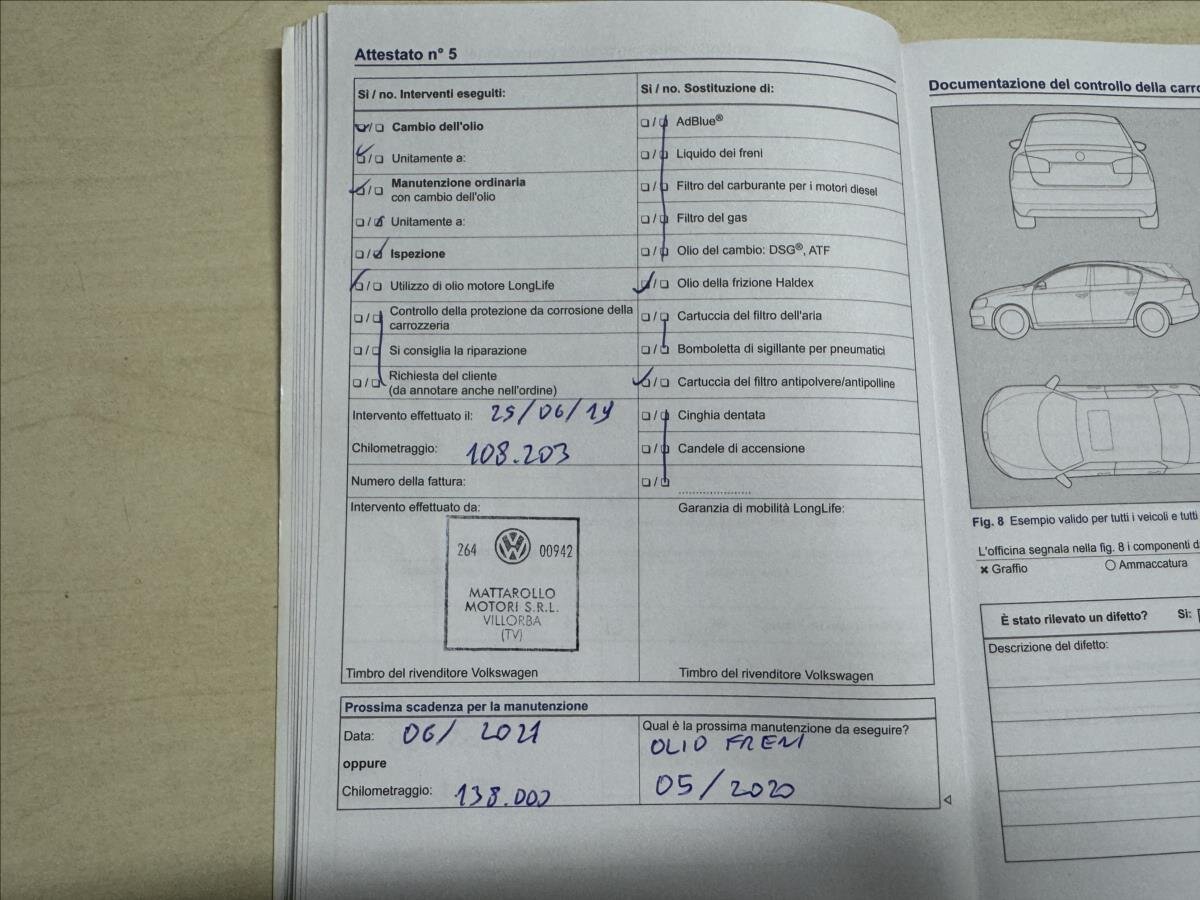 Attestato n° 5
Si / no. Interventi eseguiti:
Cambio dell'olio
Unitamente a:
Manutenzione ordinaria
con cambio dell'olio
Unitamente a:
Ispezione
Utilizzo di olio motore LongLife
Controllo della protezione da corrosione della
carrozzeria
Si consiglia la riparazione
Richiesta del cliente
(da annotare anche nell'ordine)
Intervento effettuato il: 25/06/19
Chilometraggio: 108.203
Numero della fattura:
Intervento effettuato da:
264 00942
MATTAROLLO
MOTORI S.R.L.
VILLORBA
(TV)
Timbro del rivenditore Volkswagen
Si / no. Sostituzione di:
AdBlue®
Liquido dei freni
Filtro del carburante per i motori diesel
Filtro del gas
Olio del cambio: DSG®, ATF
Olio della frizione Haldex
Cartuccia del filtro dell'aria
Bomboletta di sigillante per pneumatici
Cartuccia del filtro antipolvere/antipolline
Cinghia dentata
Candele di accensione
Garanzia di mobilità LongLife:
Timbro del rivenditore Volkswagen
Prossima scadenza per la manutenzione
Data: 06/ 2021
oppure
Chilometraggio: 138.000
Qual è la prossima manutenzione da eseguire?
OLIO FRENI
05/2020
Documentazione del controllo della carro
Fig. 8 Esempio valido per tutti i veicoli e tutti
L'officina segnala nella fig. 8 i componenti d
Graffio
Ammaccatura
È stato rilevato un difetto? Si:
Descrizione del difetto: